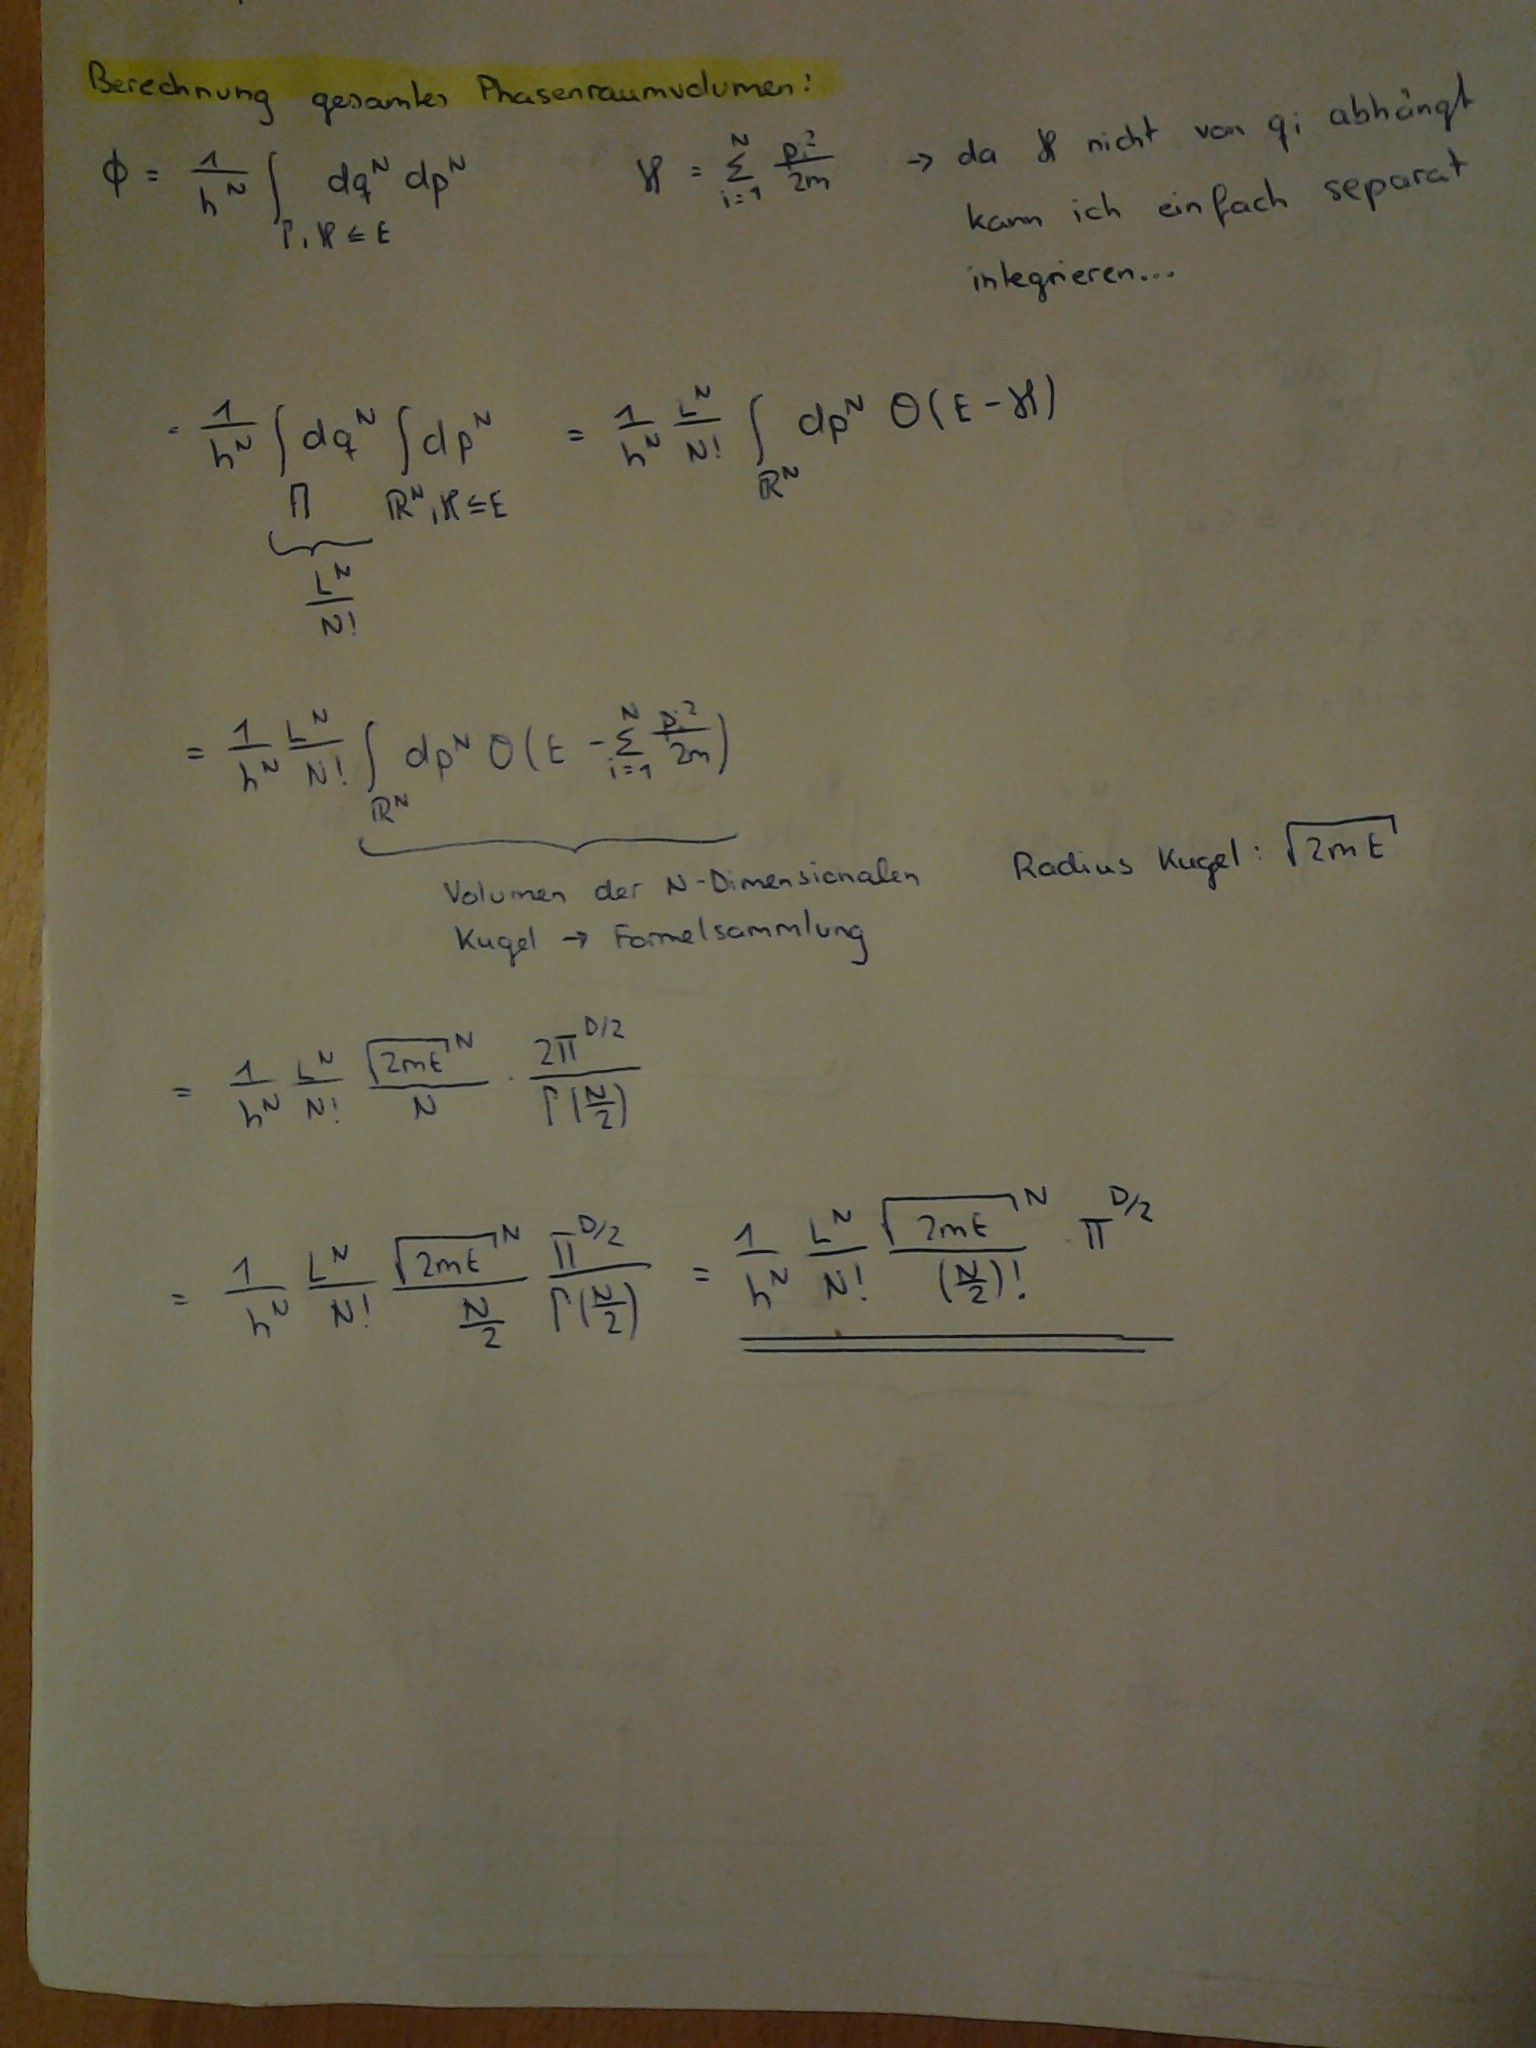 Berechnung gesamtes Phasenraumvolumen:
ϕ = 1/h^N ∫_{Γ, ℋ ≤ E} dq^N dp^N    ℋ = Σ_{i=1}^N p_i²/2m → da ℋ nicht von q_i abhängt
kann ich einfach separat
integrieren...
= 1/h^N ∫_Π dq^N ∫_{ℝ^N, ℋ ≤ E} dp^N = 1/h^N L^N/N! ∫_{ℝ^N} dp^N Θ(E - ℋ)
L^N/N!
= 1/h^N L^N/N! ∫_{ℝ^N} dp^N Θ(E - Σ_{i=1}^N p_i²/2m)
Volumen der N-Dimensionalen    Radius Kugel: √(2mE)
Kugel → Formelsammlung
= 1/h^N L^N/N! √(2mE)^N/N · 2π^{D/2}/Γ(N/2)
= 1/h^N L^N/N! √(2mE)^N/(N/2) π^{D/2}/Γ(N/2) = 1/h^N L^N/N! √(2mE)^N/(N/2)! · π^{D/2}